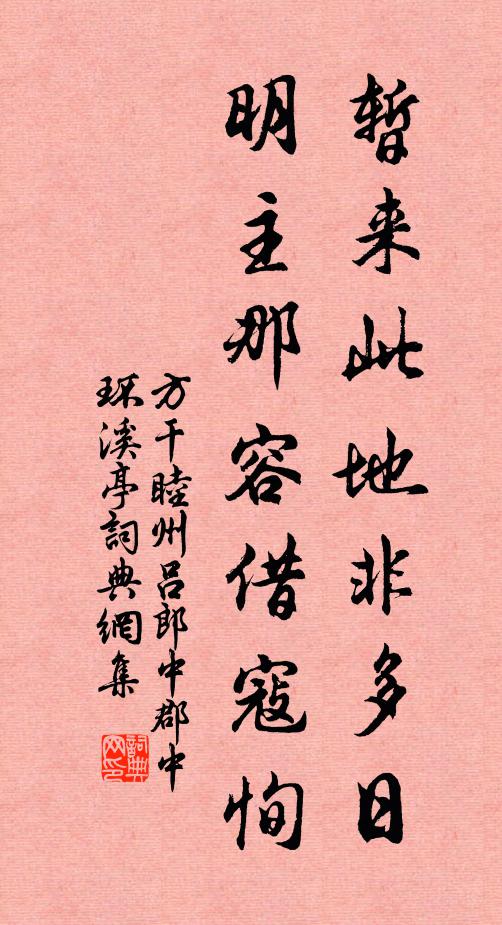 暫来此地非多日
明主那容借寇恂
方干睦州呂郎中郡中
环溪亭詞典網集
詞典
网印